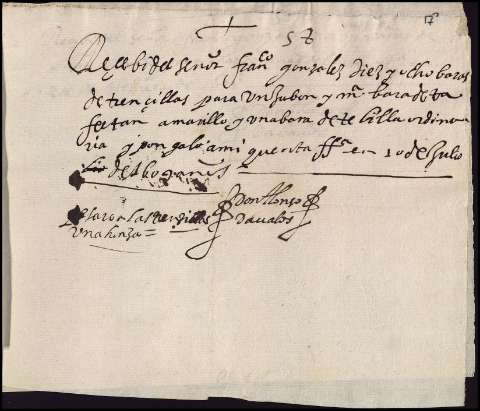 58
Reçebi del señor franco gonzalez diez y ocho baras
de trençillas para un jubon y ma bara de ta
fetan amarillo y una bara de telilla ordina
ria y pongalo a mi quenta ffa en 10 de Julio
de
Don Alonso
pesaron las trençillas davalos
una honza